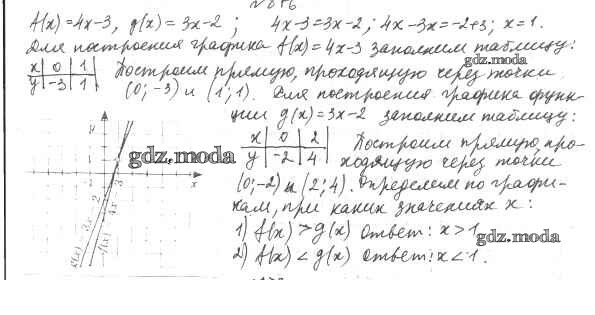 f(x)=4x-3, g(x)=3x-2; 4x-3=3x-2; 4x-3x=-2+3; x=1.
Для построения графика f(x)=4x-3 заполним таблицу:
gdz.moda
x 0 1 Построим прямую, проходящую через точки
y -3 1 (0;-3) и (1;1). Для построения графика функ-
ции g(x)=3x-2 заполним таблицу:
x 0 2 Построим прямую, про-
y -2 4 ходящую через точки
gdz.moda
(0;-2) и (2;4). Определим по графи-
кам, при каких значениях x:
1) f(x)>g(x) ответ: x>1
gdz.moda
2) f(x)<g(x) ответ: x<1.
y
x